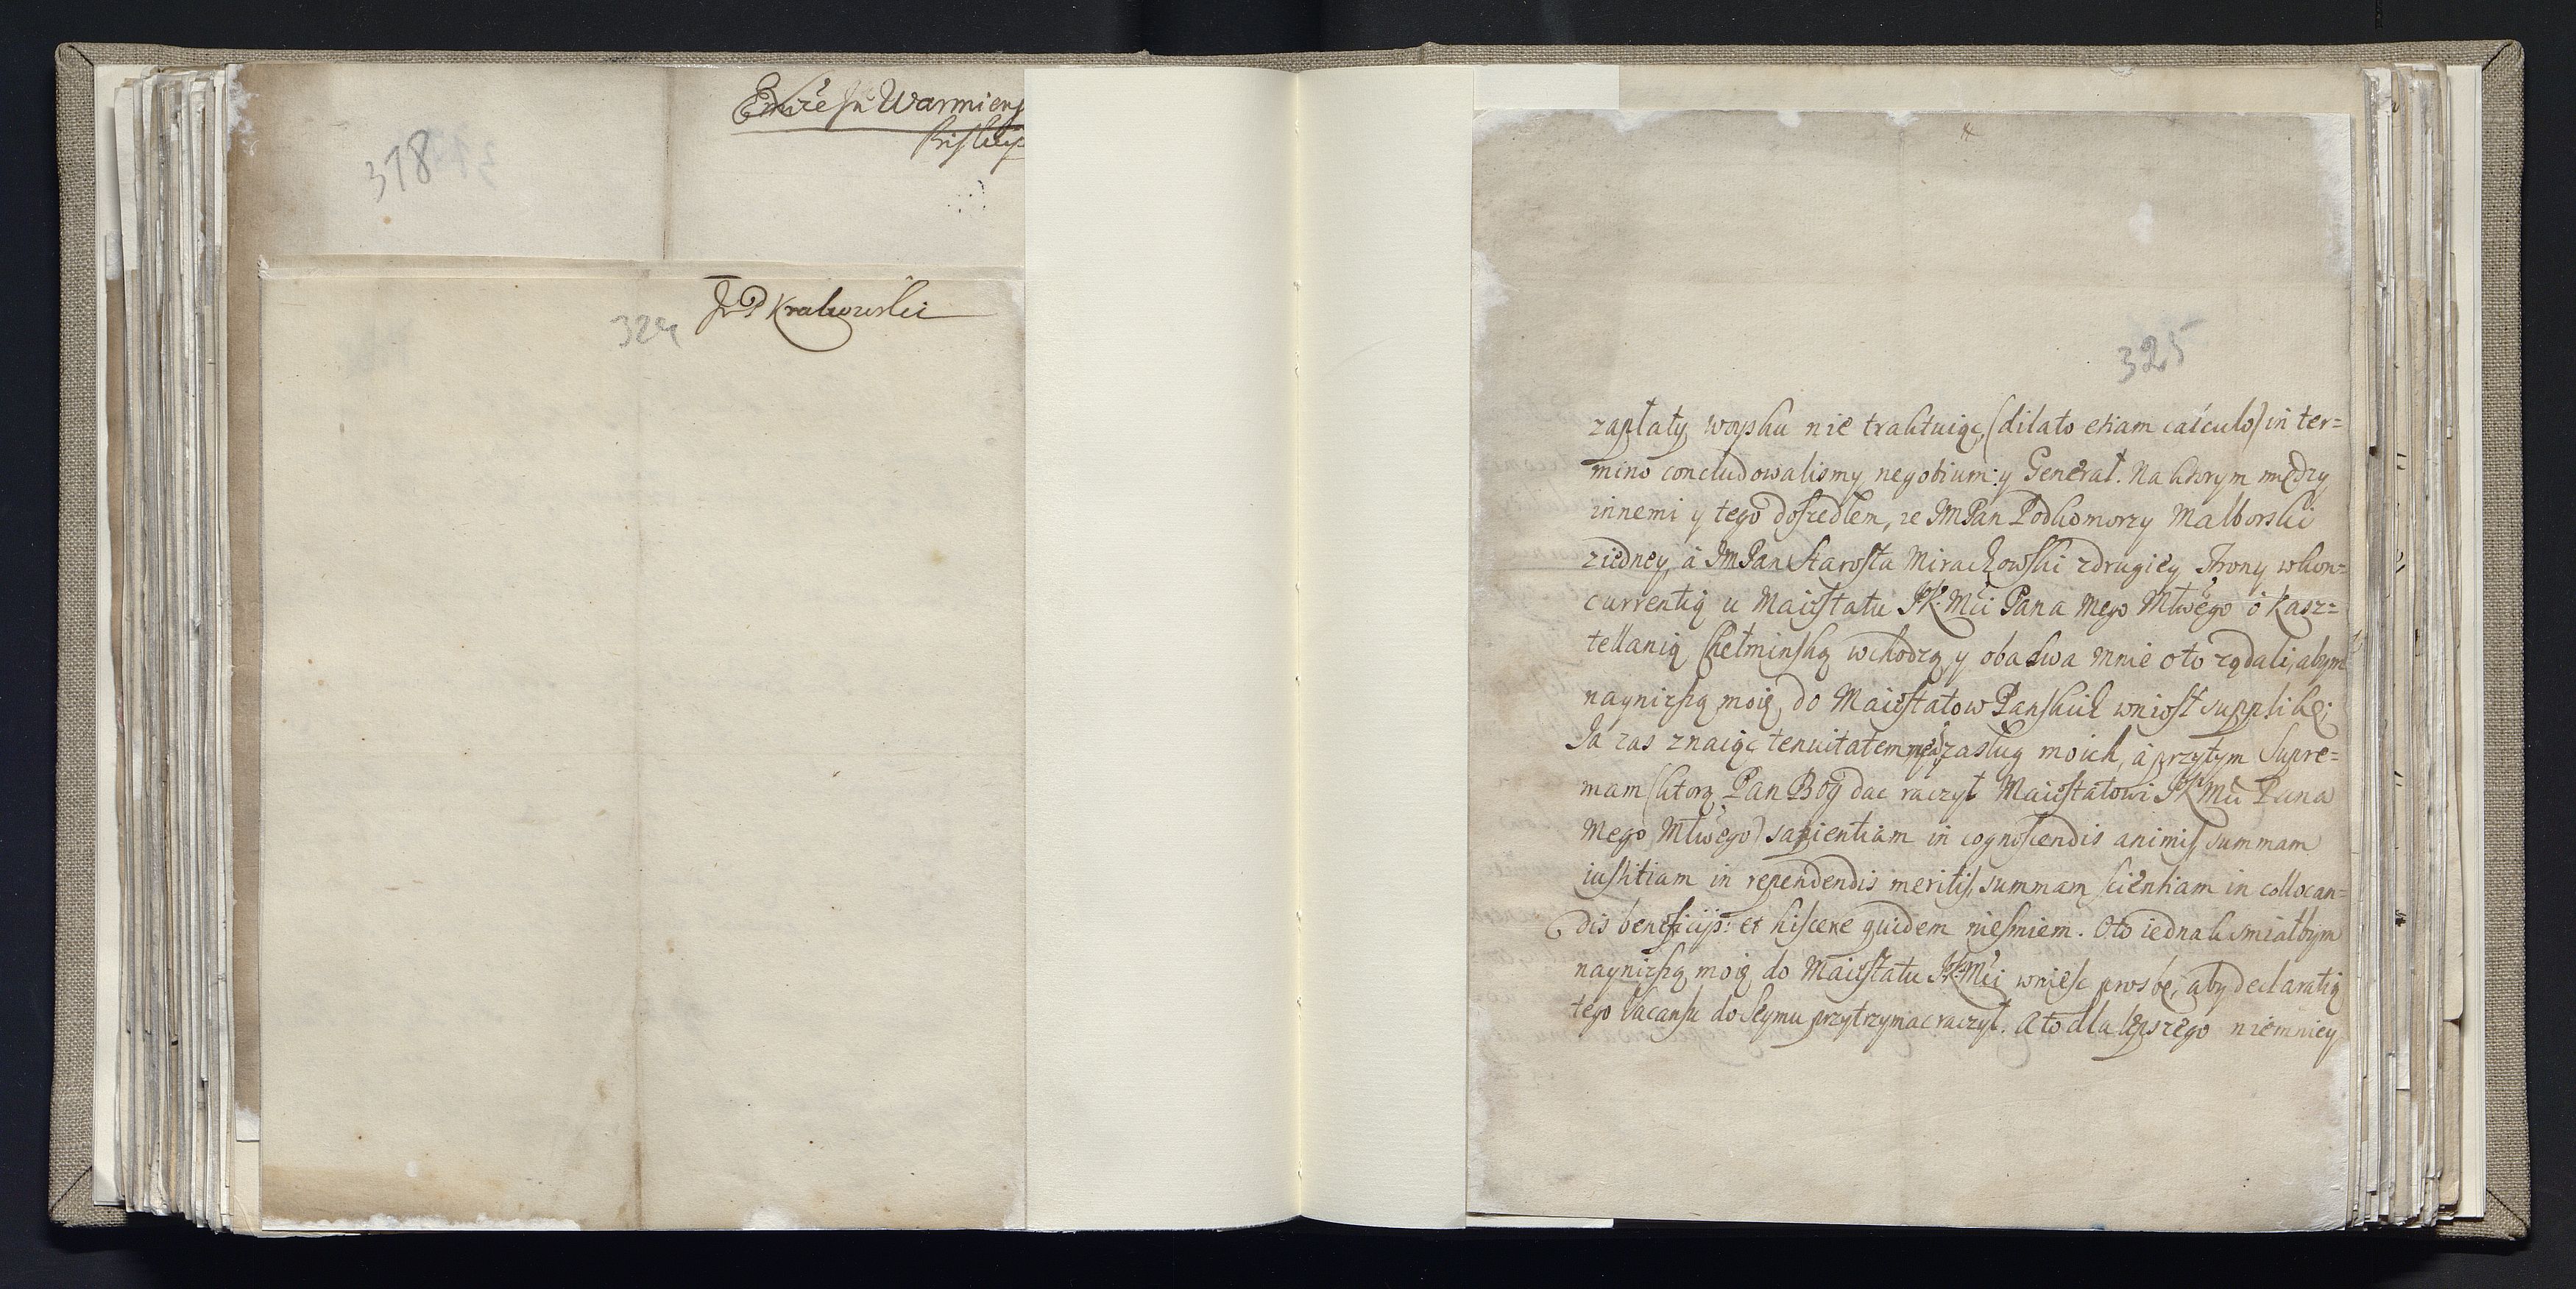 318
Warmiens
324
JP Krakowski
325
zapłaty woysku nie traktuiąc, (dilato etiam calculo) in ter=
mino concludowalismy negotium: y Generał. Na ktorym między
innemi y tego doszedłem, ze JM Pan Podkomorzy Malborski
ziedney, á JM Pan Starosta Mirachowski zdrugiey strony wkon=
currentią u Maiestatu JK Mci Pana Mego Młwego o kasz=
tellanią Chełminską wchodzą, y obadwa mnie oto ządali, abym
naynizszą moię, do Maiestatow Panskich wniosł supplikę;
Ja zas znaiąc tenuitatem zasług moich, á przytym Supre=
mam (ktorą Pan Bóg dac raczył Maiestatowi JK Mci Pana
Mego Młwego) sapientiam in cognoscendis animis, summam
iustitiam in rependendis meritis, summam scientiam in collocan=
dis beneficijs: et hiscere quidem niesmiem. Oto iednak smiałbym
naynizszą moię do Maiestatu JK Mci wniesc prosbę, aby declaratią
tego Vacansu do Seymu przytrzymac raczył. A to dla lepszego niemniey